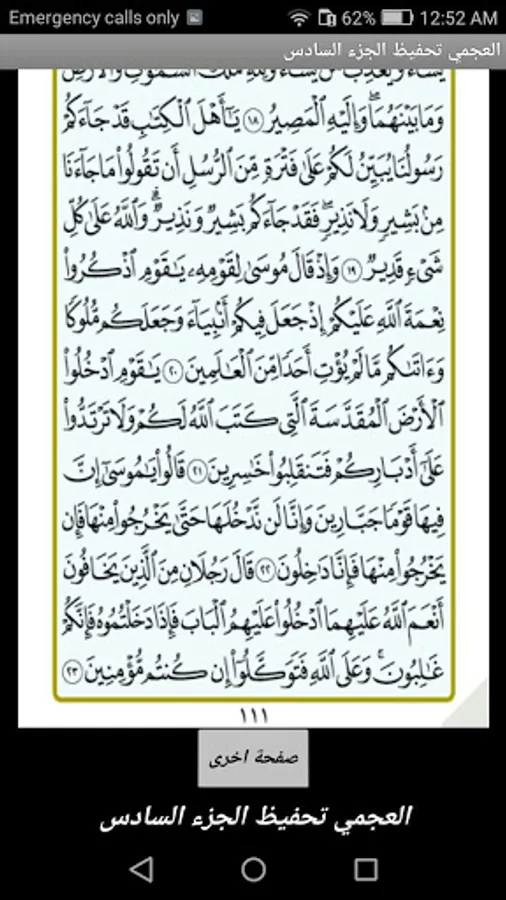 Emergency calls only 62% 12:52 AM
العجمي تحفيظ الجزء السادس
يَشَآءُ وَيُعَذِّبُ مَن يَشَآءُ وَلِلَّهِ مُلْكُ ٱلسَّمَٰوَٰتِ وَٱلْأَرْضِ
وَمَا بَيْنَهُمَا ۖ وَإِلَيْهِ ٱلْمَصِيرُ ١٨ يَٰٓأَهْلَ ٱلْكِتَٰبِ قَدْ جَآءَكُمْ
رَسُولُنَا يُبَيِّنُ لَكُمْ عَلَىٰ فَتْرَةٍ مِّنَ ٱلرُّسُلِ أَن تَقُولُوا۟ مَا جَآءَنَا
مِنۢ بَشِيرٍ وَلَا نَذِيرٍ ۖ فَقَدْ جَآءَكُم بَشِيرٌ وَنَذِيرٌ ۗ وَٱللَّهُ عَلَىٰ كُلِّ
شَىْءٍ قَدِيرٌ ١٩ وَإِذْ قَالَ مُوسَىٰ لِقَوْمِهِۦ يَٰقَوْمِ ٱذْكُرُوا۟
نِعْمَةَ ٱللَّهِ عَلَيْكُمْ إِذْ جَعَلَ فِيكُمْ أَنۢبِيَآءَ وَجَعَلَكُم مُّلُوكًا
وَءَاتَىٰكُم مَّا لَمْ يُؤْتِ أَحَدًا مِّنَ ٱلْعَٰلَمِينَ ٢٠ يَٰقَوْمِ ٱدْخُلُوا۟
ٱلْأَرْضَ ٱلْمُقَدَّسَةَ ٱلَّتِى كَتَبَ ٱللَّهُ لَكُمْ وَلَا تَرْتَدُّوا۟
عَلَىٰٓ أَدْبَارِكُمْ فَتَنقَلِبُوا۟ خَٰسِرِينَ ٢١ قَالُوا۟ يَٰمُوسَىٰٓ إِنَّ
فِيهَا قَوْمًا جَبَّارِينَ وَإِنَّا لَن نَّدْخُلَهَا حَتَّىٰ يَخْرُجُوا۟ مِنْهَا فَإِن
يَخْرُجُوا۟ مِنْهَا فَإِنَّا دَٰخِلُونَ ٢٢ قَالَ رَجُلَانِ مِنَ ٱلَّذِينَ يَخَافُونَ
أَنْعَمَ ٱللَّهُ عَلَيْهِمَا ٱدْخُلُوا۟ عَلَيْهِمُ ٱلْبَابَ فَإِذَا دَخَلْتُمُوهُ فَإِنَّكُمْ
غَٰلِبُونَ ۚ وَعَلَى ٱللَّهِ فَتَوَكَّلُوٓا۟ إِن كُنتُم مُّؤْمِنِينَ ٢٣
١١١
صفحة اخرى
العجمي تحفيظ الجزء السادس